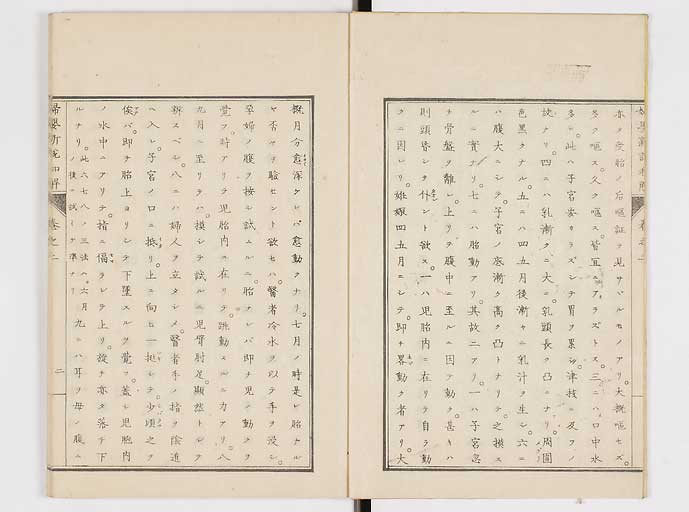 亦タ受胎ノ后嘔証ヲ見サヽルモノアリ。大概嘔セズ
多ク嘔ス。久ク嘔ス。皆宜ニアラズトス。三ニハ口中水
多シ。此ハ子宮安カラズシテ胃ヲ累ハシ。津枝ニ及フノ
故ナリ。四ニハ乳漸ク大ニ。乳頭長ク凸ニナリ。周圍
色黒クナル。五ニハ四五月後漸ヤニ乳汁ヲ生シ。六ニ
ハ腹大ニシテ。子宮ノ底漸ク高ク凸トナリテ。之ヲ摸ス
ルニ實ナリ。七ニハ胎動アリ。其故二アリ。一ハ子宮忽
チ骨盤ヲ離レ。上リテ腹中ニ至ルニ因テ動ク。甚キハ
則頭皆シテ仆ント欲ス。一ハ児胎内ニ在リテ自ラ動
クニ因レリ。姙娠四五月ニシテ。即チ畧動ク者アリ。大
概月分愈深ケレバ愈動クナリ。七月ノ時是レ胎ナル
ヤ否ヤヲ驗セント欲セハ。醫者冷水ヲ以テ手ヲ浸シ。
孕婦ノ腹ヲ按シ試ムルニ。胎ナレバ即チ児ノ動クヲ
覺フ。時アリテ児胎内ニ在リテ。跳動スルニ力アリ。八
九月ニ至リテハ。摸シテ試ルニ児臂肘足。顯然トシテ
辨スベシ。八ニハ婦人ヲ立タシメ。醫者手ノ指ヲ陰道
ヘ入レ。子宮ノ口ニ抵リ。上ニ向ヒ一挺シテ。少頃之ヲ
俟バ。即チ胎上ヨリシテ下墜スルヲ覺フ。蓋シ児胞内
ノ水中ニアリテ。指ニ偪ラレテ上リ。旋チ亦タ落チ下
ルナリ。此六七八ノ三法ハ。六月ノ後ニ試ミテ準ナリ 九ニハ耳ヲ母ノ腹ニ
卷之二
二